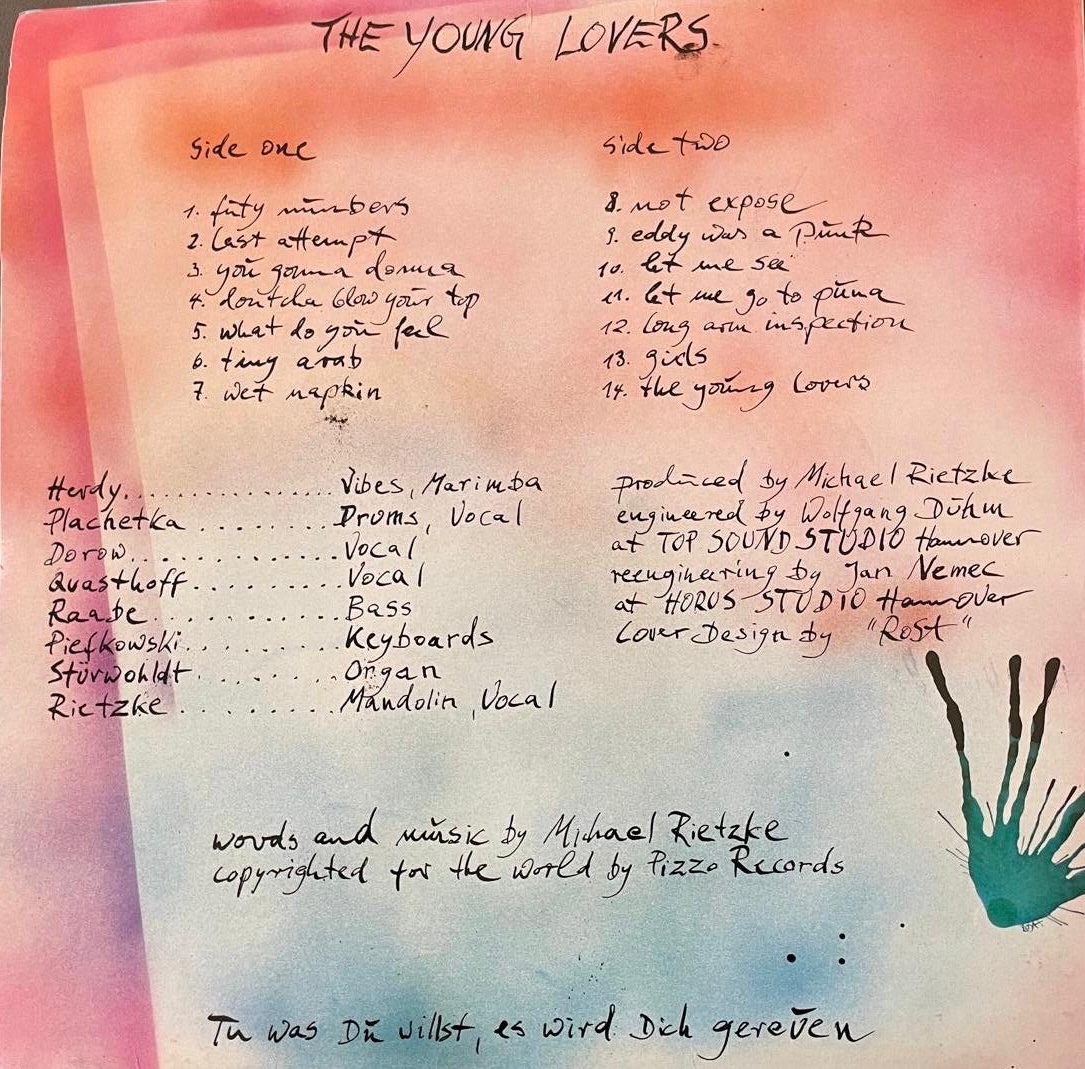 THE YOUNG LOVERS
Side one
1. numbers
2. last attempt
3. you gonna donna
4. dontcha blow your top
5. what do you feel
6. tiny arab
7. wet napkin
Side two
8. not expose
9. eddy was a Punk
10. let me see
11. let me go to puna
12. long arm inspection
13. girls
14. the young lovers
Herdy.................Vibes, Marimba
Plachetka.........Drums, Vocal
Dorow.............Vocal
Quasthoff..........Vocal
Raabe............Bass
Piefkowski.........Keyboards
Störwohldt........Organ
Rietzke..........Mandolin, Vocal
produced by Michael Rietzke
engineered by Wolfgang Dühm
at TOP SOUND STUDIO Hannover
reengineering by Jan Nemec
at HORUS STUDIO Hannover
Cover Design by "Rost"
words and music by Michael Rietzke
copyrighted for the world by Pizzo Records
Tu was Du willst, es wird Dich gereuen